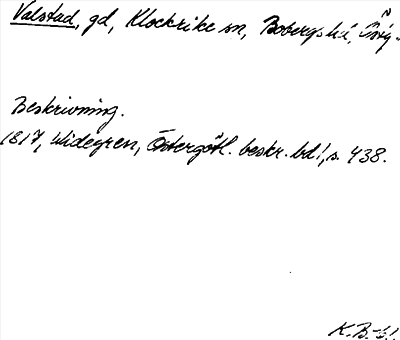 Valstad, gd, Klockrike sn, Bobergs hd, Östg.
Beskrivning.
1817, Widegren, Östergötl. beskr. bd 1, s. 438.
K.B.-61.